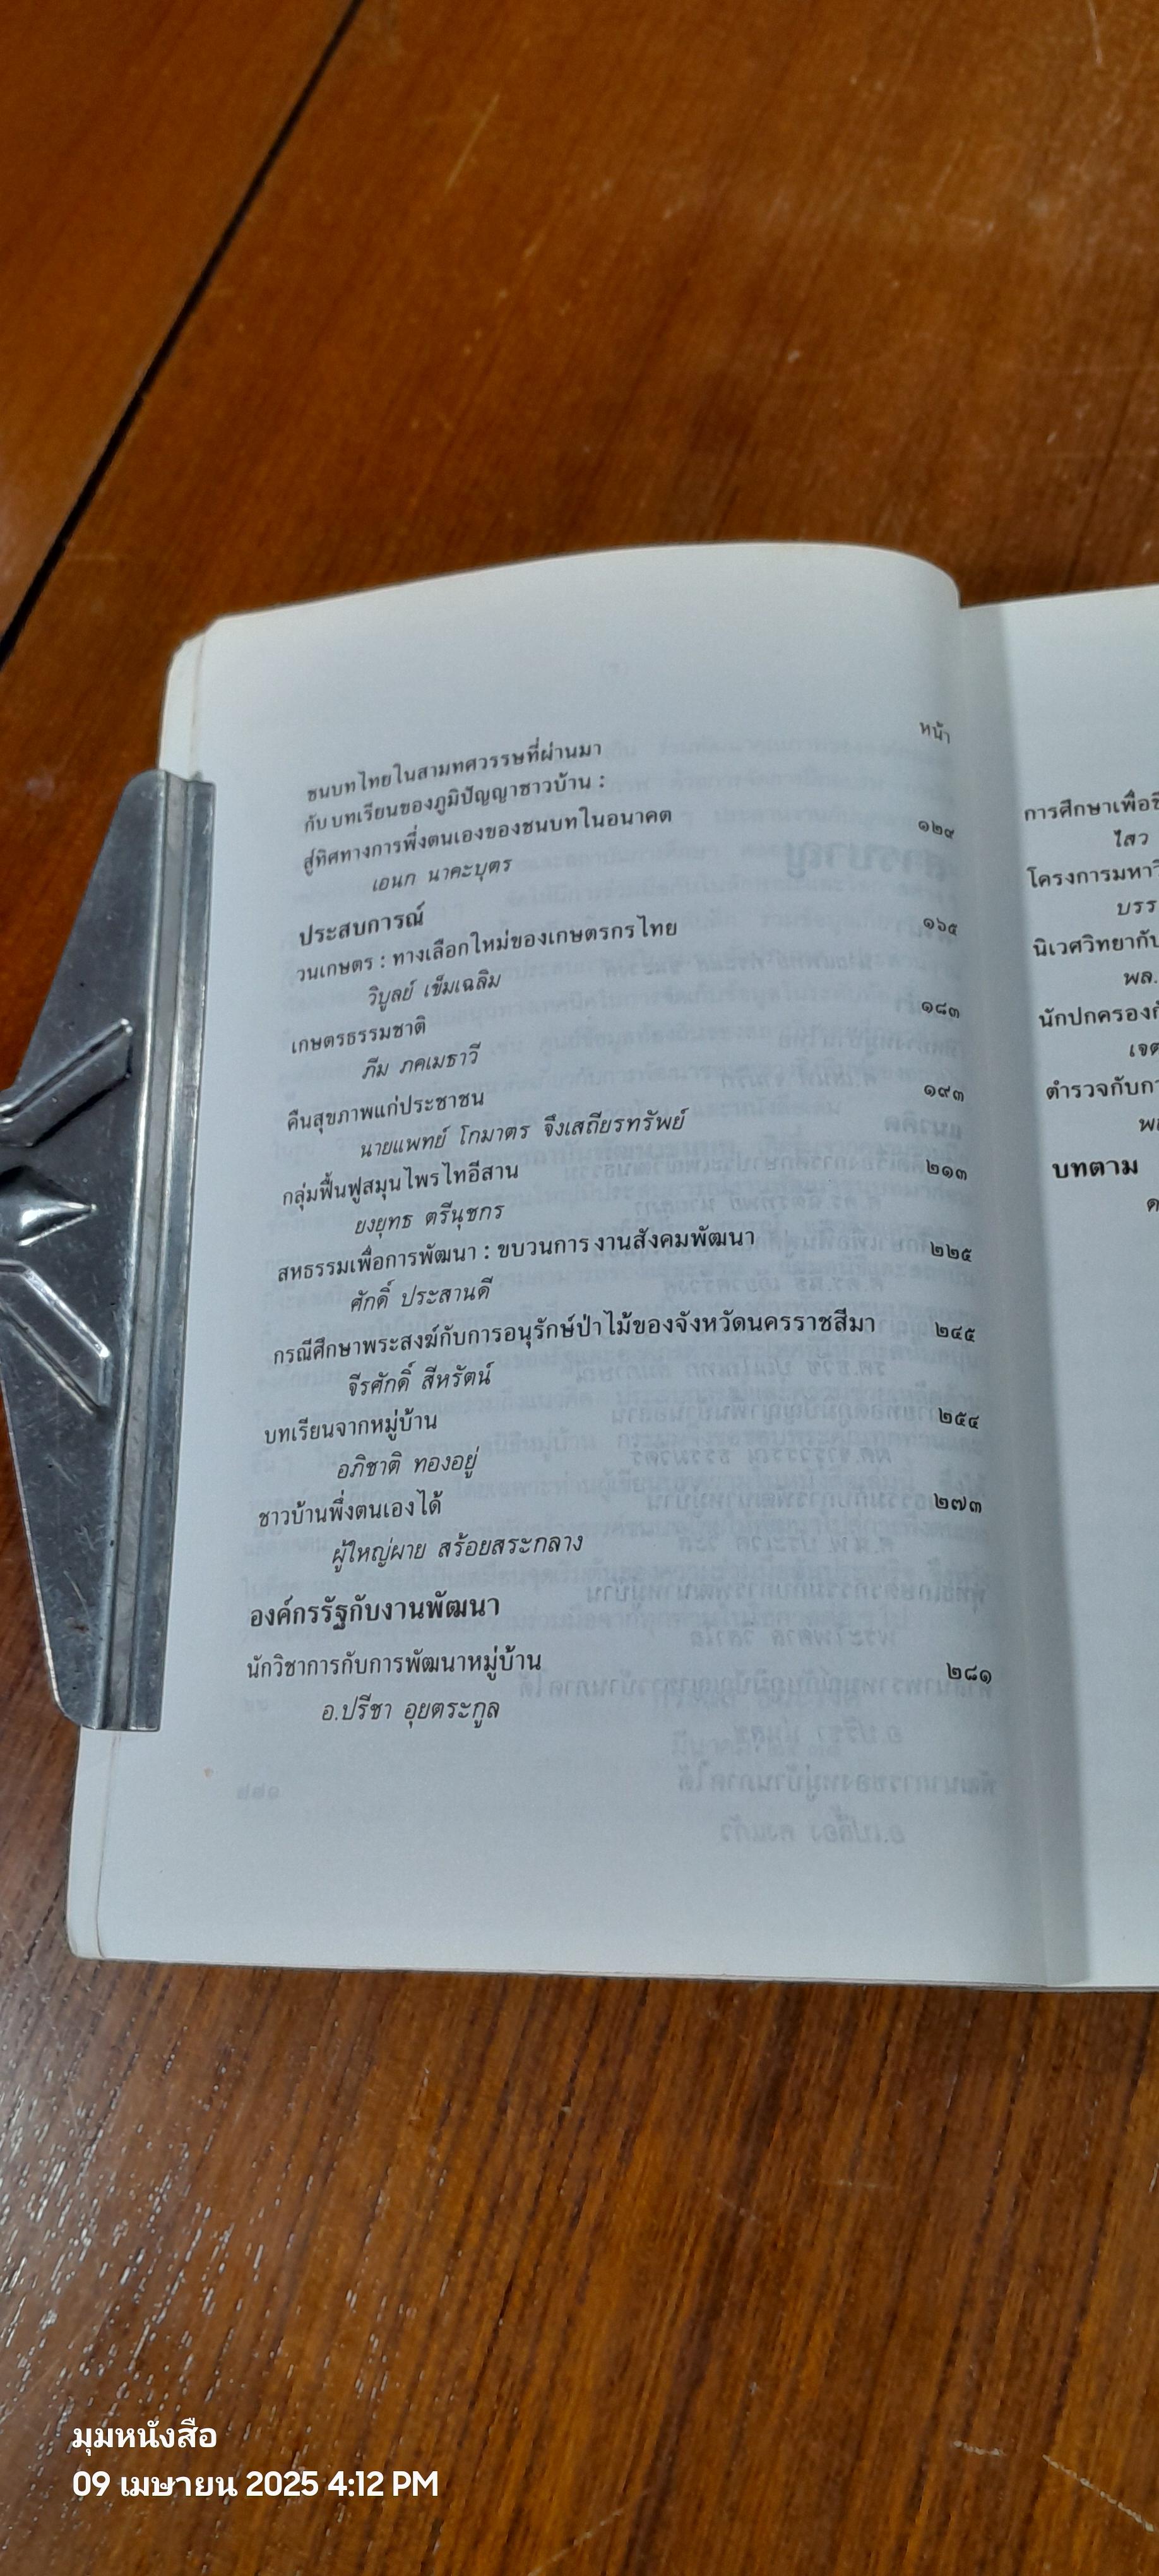 หน้า
ชนบทไทยในสามทศวรรษที่ผ่านมา
กับบทเรียนของภูมิปัญญาชาวบ้าน :
สู่ทิศทางการพึ่งตนเองของชนบทในอนาคต ๑๒๙
เอนก นาคะบุตร
ประสบการณ์
วนเกษตร : ทางเลือกใหม่ของเกษตรกรไทย ๑๖๕
วิบูลย์ เข็มเฉลิม
เกษตรธรรมชาติ ๑๘๓
ภีม ภคเมธาวี
คืนสุขภาพแก่ประชาชน ๑๙๓
นายแพทย์ โกมาตร จึงเสถียรทรัพย์
กลุ่มฟื้นฟูสมุนไพรไทอีสาน ๒๑๓
ยงยุทธ ตรีนุชกร
สหธรรมเพื่อการพัฒนา : ขบวนการงานสังคมพัฒนา ๒๒๕
ศักดิ์ ประสานดี
กรณีศึกษาพระสงฆ์กับการอนุรักษ์ป่าไม้ของจังหวัดนครราชสีมา ๒๔๕
จีรศักดิ์ สีหรัตน์
บทเรียนจากหมู่บ้าน ๒๕๔
อภิชาติ ทองอยู่
ชาวบ้านพึ่งตนเองได้ ๒๗๓
ผู้ใหญ่ผาย สร้อยสระกลาง
องค์กรรัฐกับงานพัฒนา
นักวิชาการกับการพัฒนาหมู่บ้าน ๒๘๑
อ.ปรีชา อุยตระกูล
การศึกษาเพื่อ
ไสว
โครงการมหา
บรร
นิเวศวิทยากับ
พล.
นักปกครอง
เจต
ตำรวจกับ
บทตาม
มุมหนังสือ
09 เมษายน 2025 4:12 PM